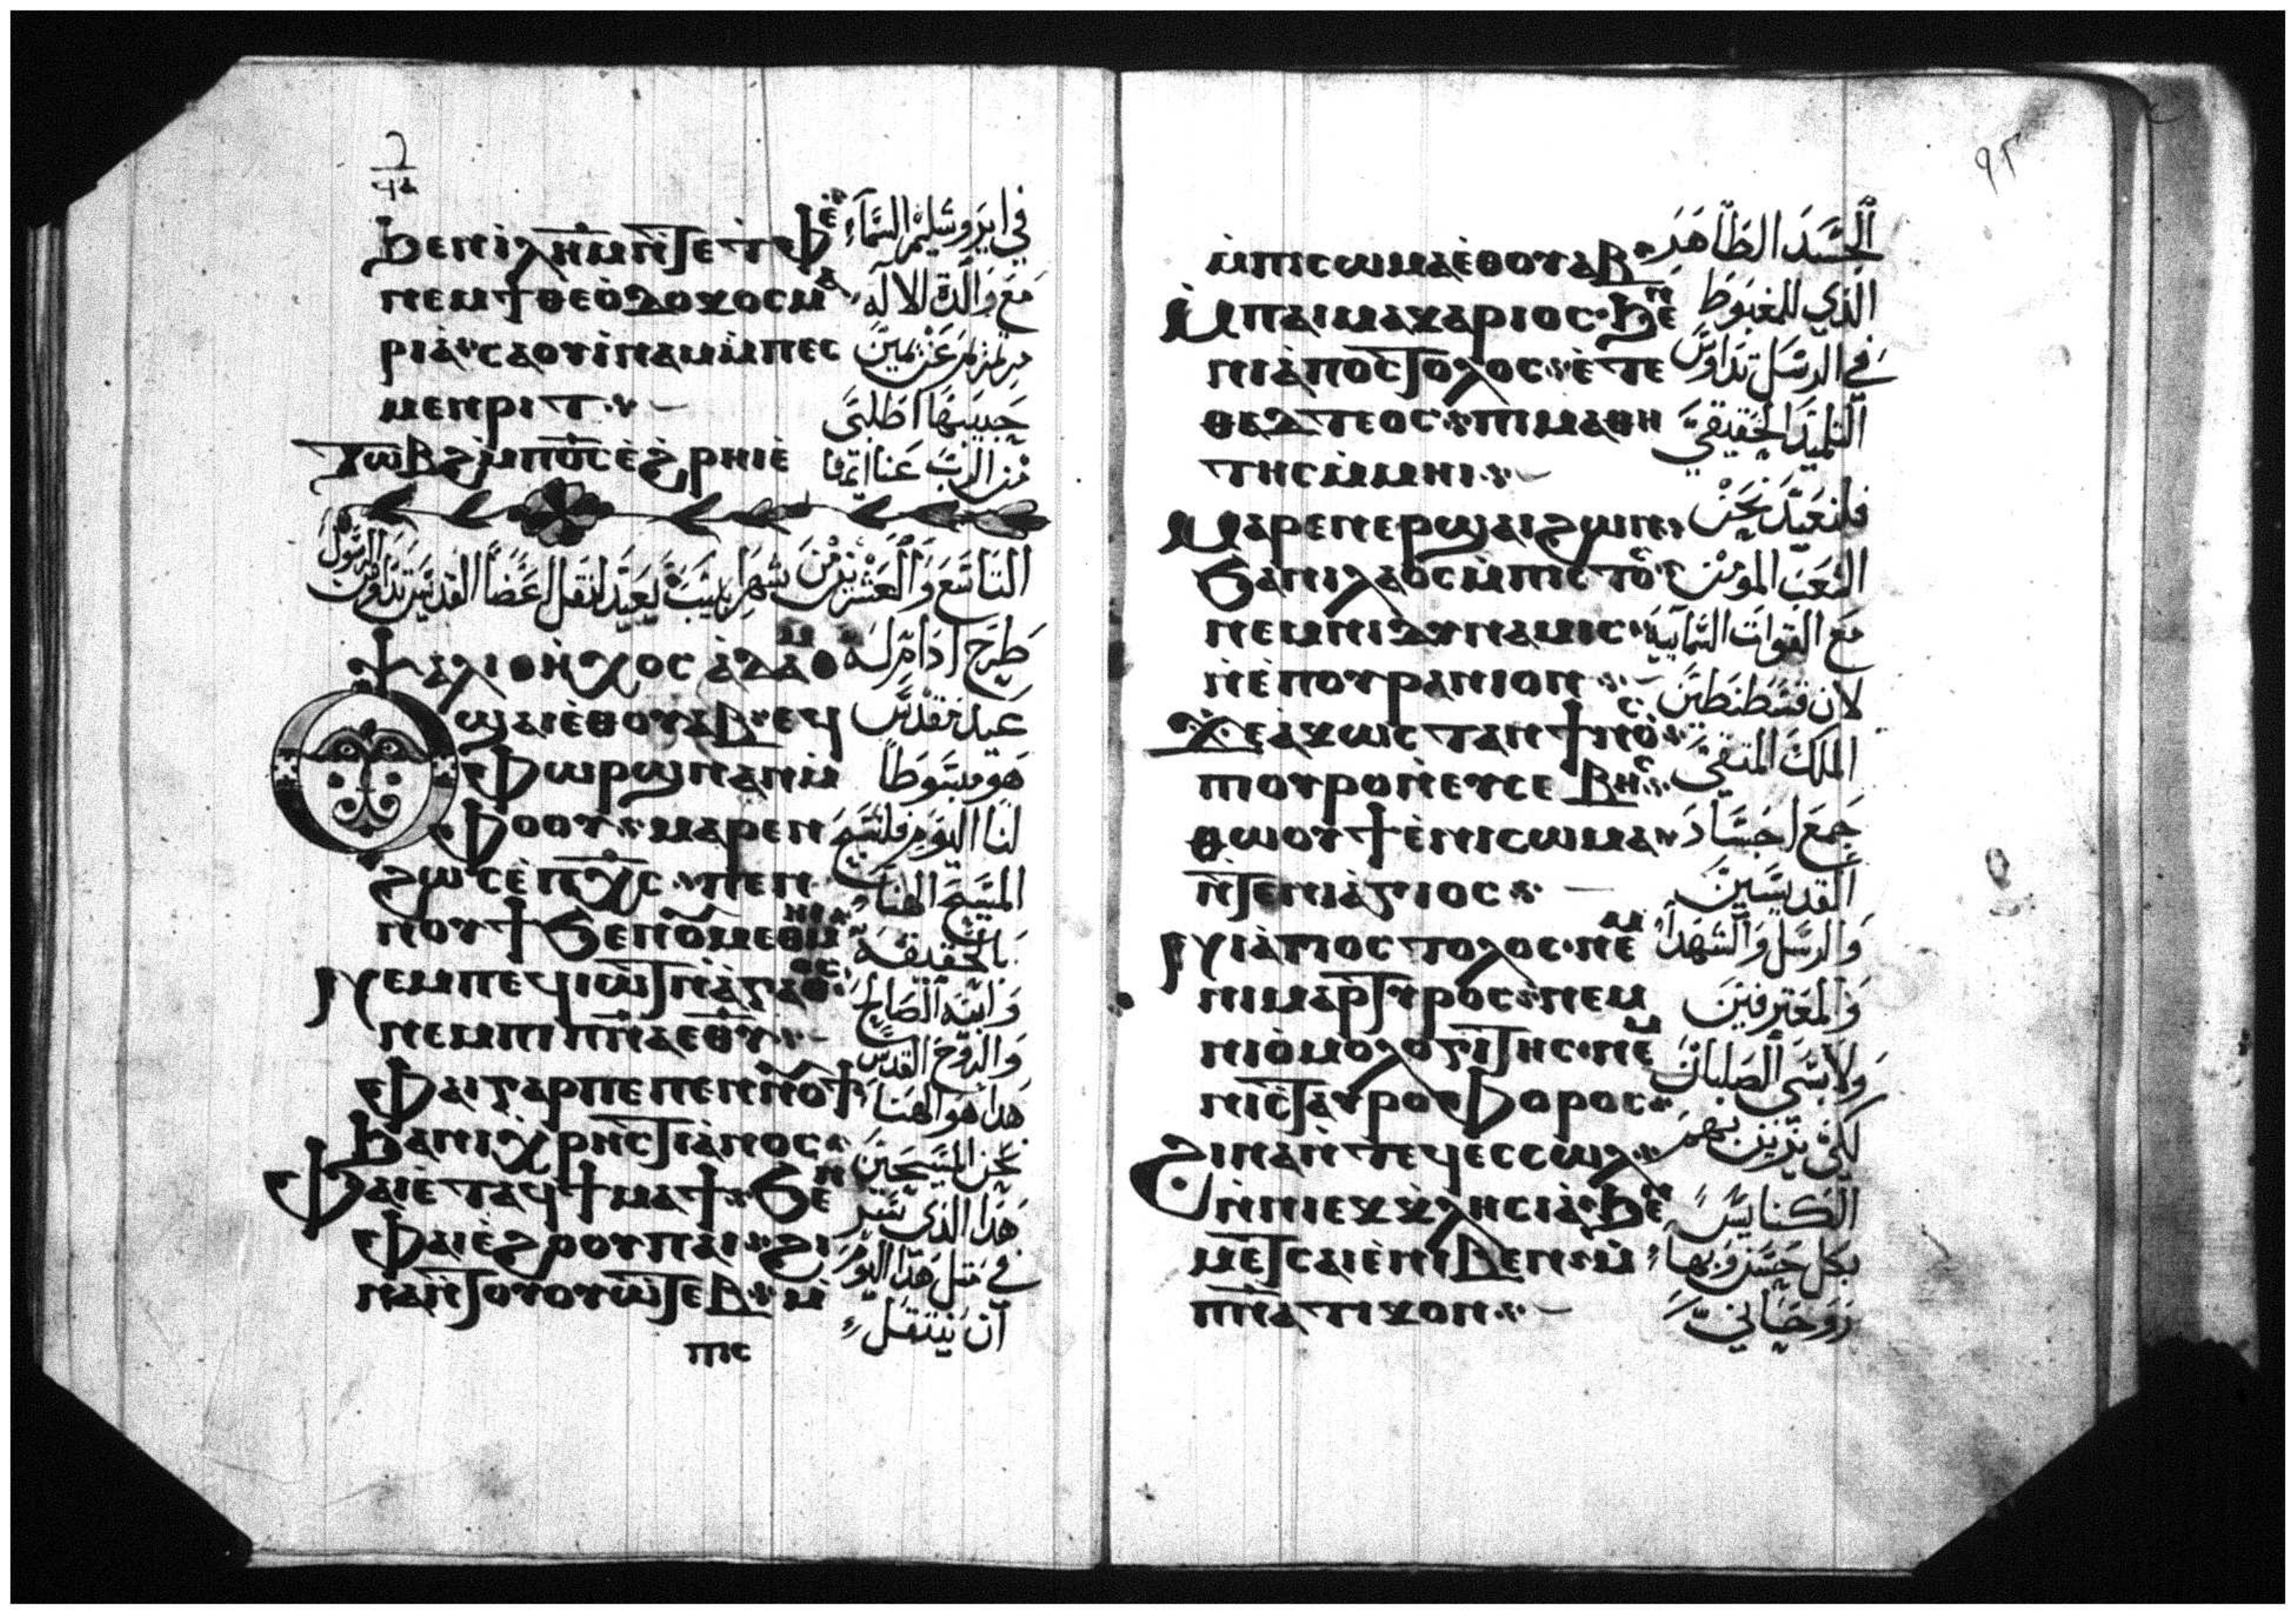 ϧⲉⲛⲓⲗⲏⲙⲛ̀ⲧⲉⲧⲫⲉ̀ في ايروشليم السمآء
ⲛⲉⲙϯⲑⲉⲟ̀ⲇⲟⲕⲟⲥⲙⲁ مع والدة الاله
ⲣⲓⲁ̀ⲥⲁⲟⲩⲓ̀ⲛⲁⲙⲙ̀ⲡⲉⲥ مريم عن يمين
ⲙⲉⲛⲣⲓⲧ حبيبها اطلبي
ⲧⲱⲃϩⲙ̀ⲡⲟ̅ⲥ̅ⲉ̀ϩⲣⲏⲓⲉ̀ من الرب عنا
التاسع والعشرين من شهر لنقل اعضا القديس تداوس الرسول
ⲯⲁⲗⲓⲟⲛⲏ̀ⲭⲟⲥⲁ̀ⲇⲁⲙ طرح ادام له
ⲟⲩϣⲁⲓⲉ̀ⲑⲟⲩⲁⲃⲉϥ عيد مقدس
ⲫⲱⲣϣⲛⲁⲛⲙ̀ هو مبسوطا
ⲫⲟⲟⲩⲙⲁⲣⲉⲛ لنا اليوم فلنسبح
ϩⲱⲥⲉ̀ⲡⲭ̅ⲥ̅ⲡⲉⲛ المسيح الهنا
ⲛⲟⲩϯϧⲉⲛⲟⲩⲙⲉⲑⲙⲏⲓ بالحقيقة
ⲛⲉⲙⲡⲉϥⲓⲱⲧⲛ̀ⲁ̀ⲅⲁⲑⲟⲥ وابيه الصالح
ⲛⲉⲙⲡⲓⲡ̅ⲛ̅ⲁⲉⲑ̅ⲩ̅ والروح القدس
ⲫⲁⲓⲅⲁⲣⲡⲉⲡⲉⲛⲛⲟⲩϯ هدا هو الهنا
ϧⲁⲛⲓⲭⲣⲏⲥⲧⲓⲁ̀ⲛⲟⲥ نحن المسيحين
ⲫⲁⲓⲉ̀ⲧⲁϥϯⲙⲁϯϧⲉⲛ هذا الذي
ⲫⲁⲓⲉ̀ϩⲟⲟⲩⲡⲁⲓϩⲓ في مثل هذا اليوم
ⲛⲁⲛ̀ⲧⲟⲩⲟⲩⲱⲧⲉⲃⲙ̀ ان ينتقل
ⲡⲓⲥ
٩٢
ⲙ̀ⲡⲓⲥⲱⲙⲁⲉ̀ⲑⲟⲩⲁⲃ الجسد الطاهر
ⲙ̀ⲡⲁⲓⲙⲁⲕⲁⲣⲓⲟⲥϧⲉⲛ الذي للمغبوط
ⲛⲓⲁ̀ⲡⲟⲥⲧⲟⲗⲟⲥⲉ̀ⲧⲉ في الرسل تداوس
ⲑⲁⲇⲧⲉⲟⲥⲡⲓⲙⲁⲑⲏ التلميذ الحقيقي
ⲧⲏⲥⲙ̀ⲙⲏⲓ
ⲙⲁⲣⲉⲛⲉⲣϣⲁⲓϩⲱⲛ فلنعيد نحن
ϧⲁⲛⲓⲗⲁⲟⲥⲙ̀ⲡⲓⲥⲧⲟⲥ الشعب المومن
ⲛⲉⲙⲛⲓⲇⲩⲛⲁⲙⲓⲥ مع القوات السمآيية
ⲛ̀ⲉ̀ⲡⲟⲩⲣⲁⲛⲓⲟⲛ لان قسطنطين
ϫⲉⲁ̀ⲕⲱⲥⲧⲁⲛϯⲛⲟⲥ الملك المتقي
ⲡⲟⲩⲣⲟⲛ̀ⲉⲩⲥⲉⲃⲏⲥ جمع اجساد
ⲑⲱⲟⲩϯⲉ̀ⲛⲓⲥⲱⲙⲁ القديسين
ⲛ̀ⲧⲉⲛⲓⲁ̀ⲅⲓⲟⲥ والرسل والشهدآ
ⲛⲓⲁ̀ⲡⲟⲥⲧⲟⲗⲟⲥⲛⲉⲙ والمعترفين
ⲛⲓⲙⲁⲣⲧⲩⲣⲟⲥⲛⲉⲙ ولابسي الصلبان
ⲛⲓⲟ̀ⲙⲟⲗⲟⲅⲓⲧⲏⲥⲛⲉⲙ
ⲛⲓⲥⲧⲁⲩⲣⲟⲫⲟⲣⲟⲥ
ϩⲓⲛⲁⲛ̀ⲧⲉϥⲉⲥⲥⲱⲗ لكي يزين بهم
ⲛ̀ⲛⲓⲉⲕⲕⲗⲏⲥⲓⲁ̀ϧⲉⲛ الكنايس
ⲙⲉⲧⲥⲁⲓⲉ̀ⲛⲓⲃⲉⲛⲙ̀ بكل حسن وبهاء
ⲡ̅ⲛ̅ⲁⲧⲓⲕⲟⲛ روحاني